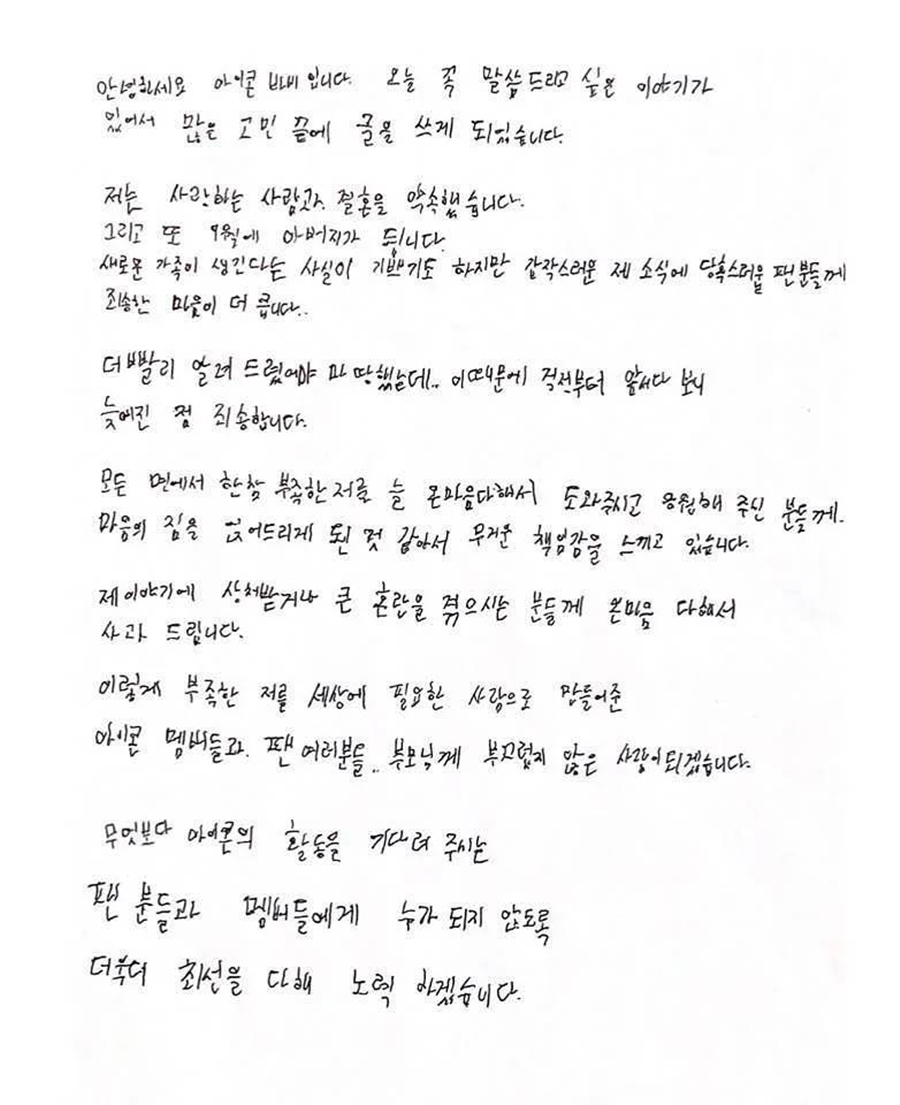 안녕하세요 아이콘 바비 입니다. 오늘 꼭 말씀드리고 싶은 이야기가
있어서 많은 고민 끝에 글을 쓰게 되었습니다.
저는 사랑하는 사람과 결혼을 약속했습니다.
그리고 또 9월에 아버지가 됩니다.
새로운 가족이 생긴다는 사실이 기쁘기도 하지만 갑작스러운 제 소식에 당혹스러울 팬분들께
죄송한 마음이 더 큽니다..
더 빨리 알려 드렸어야 마땅했는데.. 이 때문에 걱정부터 앞서다 보니
늦어진 점 죄송합니다.
모든 면에서 한참 부족한 저를 늘 온마음다해서 도와주시고 응원해 주신 분들께.
마음의 짐을 얹어드리게 된 것 같아서 무거운 책임감을 느끼고 있습니다.
제 이야기에 상처받거나 큰 혼란을 겪으시는 분들께 온마음 다해서
사과 드립니다.
이렇게 부족한 저를 세상에 필요한 사람으로 만들어준
아이콘 멤버들과. 팬 여러분들.. 부모님께 부끄럽지 않은 사람이 되겠습니다.
무엇보다 아이콘의 활동을 기다려 주시는
팬 분들과 멤버들에게 누가 되지 않도록
더욱더 최선을 다해 노력 하겠습니다.